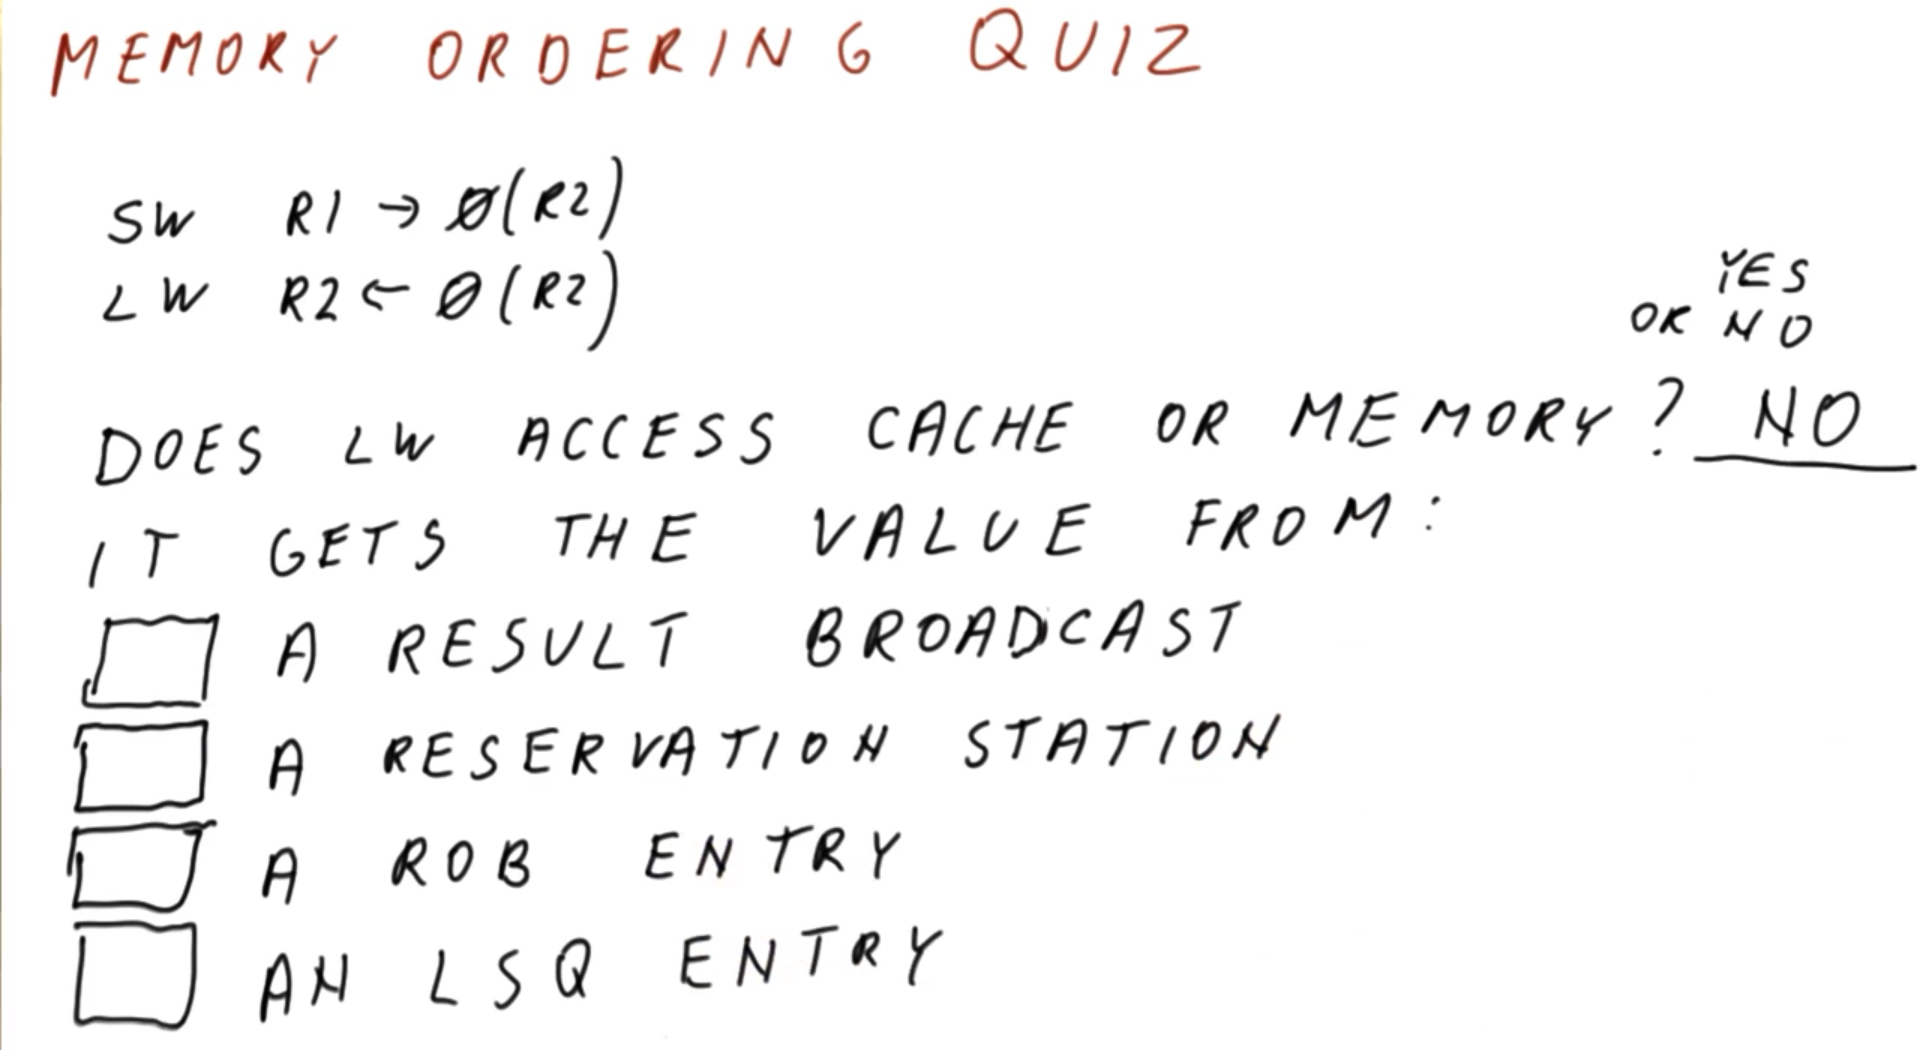 MEMORY ORDERING QUIZ
SW R1 → 0(R2)
LW R2 ← 0(R2)
YES
OR NO
DOES LW ACCESS CACHE OR MEMORY? NO
IT GETS THE VALUE FROM:
A RESULT BROADCAST
A RESERVATION STATION
A ROB ENTRY
AN LSQ ENTRY